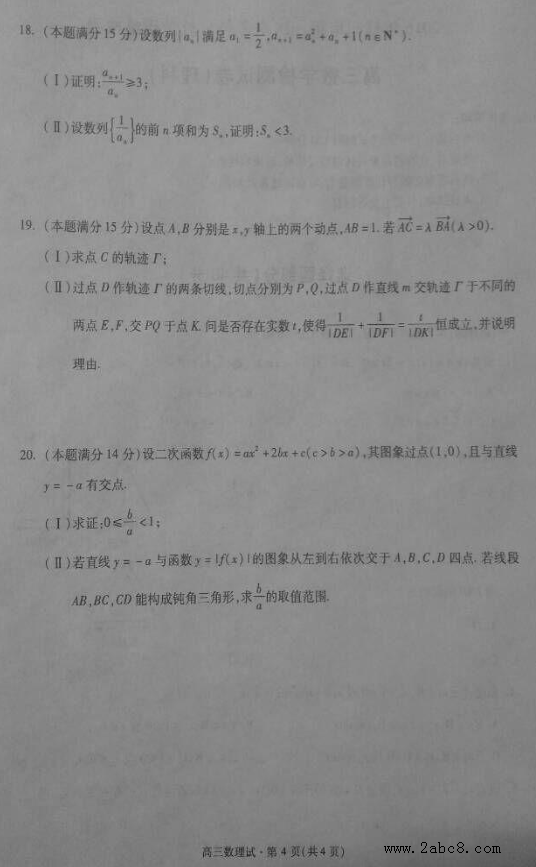 18. (本题满分15分)设数列{aₙ}满足a₁=1/2,aₙ₊₁=aₙ²+aₙ+1(n∈N*).
(Ⅰ)证明:aₙ₊₁/aₙ≥3;
(Ⅱ)设数列{1/aₙ}的前n项和为Sₙ,证明:Sₙ<3.
19. (本题满分15分)设点A,B分别是x,y轴上的两个动点,AB=1.若AC→=λBA→(λ>0).
(Ⅰ)求点C的轨迹Γ;
(Ⅱ)过点D作轨迹Γ的两条切线,切点分别为P,Q,过点D作直线m交轨迹Γ于不同的
两点E,F,交PQ于点K.问是否存在实数t,使得1/|DE|+1/|DF|=t/|DK|恒成立,并说明
理由.
20. (本题满分14分)设二次函数f(x)=ax²+2bx+c(c>b>a),其图象过点(1,0),且与直线
y=-a有交点.
(Ⅰ)求证:0≤b/a<1;
(Ⅱ)若直线y=-a与函数y=|f(x)|的图象从左到右依次交于A,B,C,D四点.若线段
AB,BC,CD能构成钝角三角形,求b/a的取值范围.
高三数理试·第4页(共4页)
www.2abc8.com